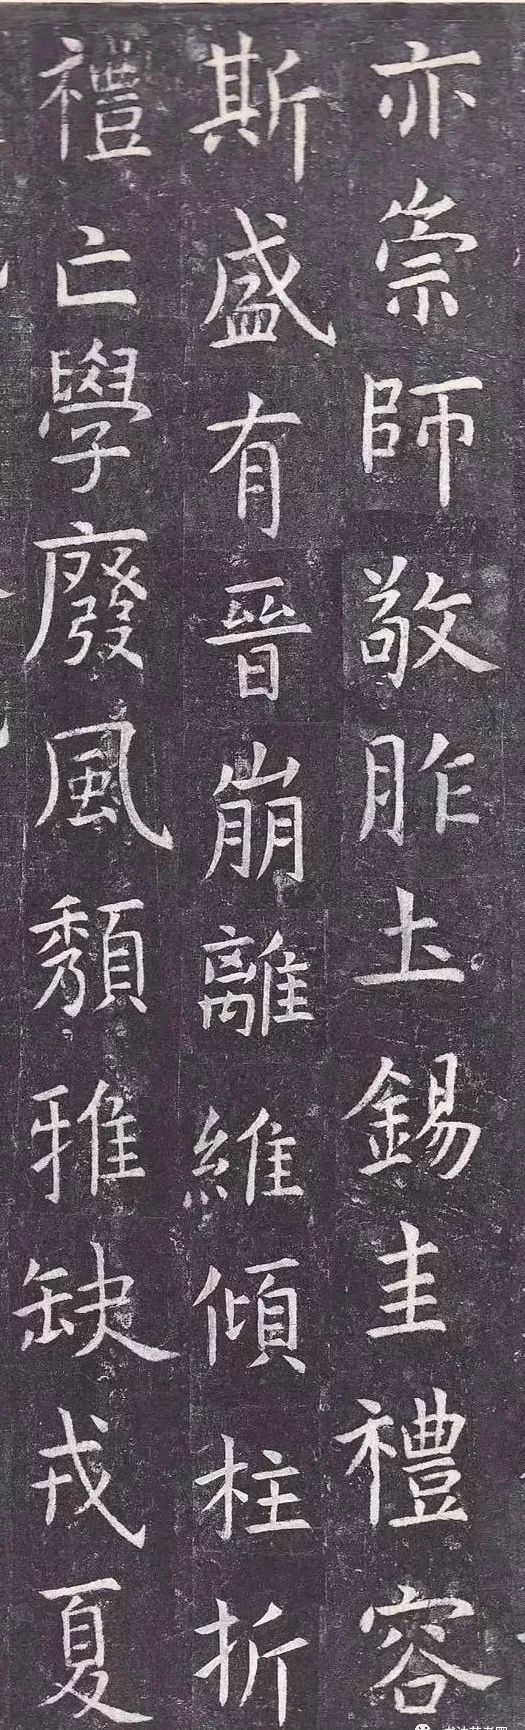 亦崇師敬胙土錫圭禮容
斯盛有晉崩離維傾柱折
禮亡學廢風頽雅缺戎夏